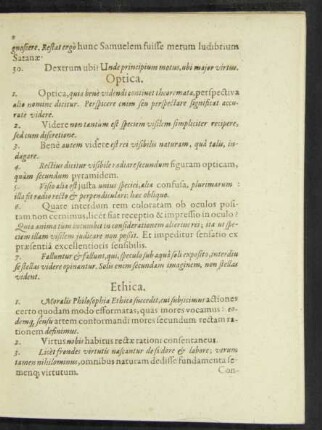 gnoscere. Restat ergò hunc Samuelem fuisse merum ludibrium
Satanæ.
50. Dextrum ubi: Unde principium motus, ubi major virtus.
Optica.
1. Optica, quia benè videndi continet theoremata, perspectiva
alio nomine dicitur. Perspicere enim seu perspectare significat accurate videre.
2. Videre non tantum est speciem visilem simpliciter recipere,
sed cum discretione.
3. Benè autem videre est rei visibilis naturam, quâ talis, indagare.
4. Rectius dicitur visibile radiare secundum figuram opticam,
quàm secundum pyramidem.
5. Visio alia est justa unius speciei, alia confusa, plurimarum:
illa fit radio recto & perpendiculari: hæc obliquo.
6. Quare interdum rem coloratam ob oculos positam
non cernimus, licèt fiat receptio & impressio in oculo?
Quia anima tùm incumbit in considerationem alterius rei, ita ut speciem
illam visilem judicare non possit. Et impeditur sensatio ex
præsentiâ excellentioris sensibilis.
7. Falluntur & fallunt, qui, speculo sub aqua soli exposito, interdiu
se stellas videre opinantur. Solis enim secundam imaginem, non stellas
vident.
Ethica.
1. Moralis Philosophia Ethica succedit, cui subjicimus actiones
certo quodam modo efformatas, quas mores vocamus: eodemq;
sensu artem conformandi mores secundum rectam rationem
definimus.
2. Virtus nobis habitus rectæ rationi consentaneus.
3. Licèt frondes virtutis nascantur desidere & labore; verum
tamen nihilominus, omnibus naturam dedisse fundamenta semenq;
virtutum.
Con-